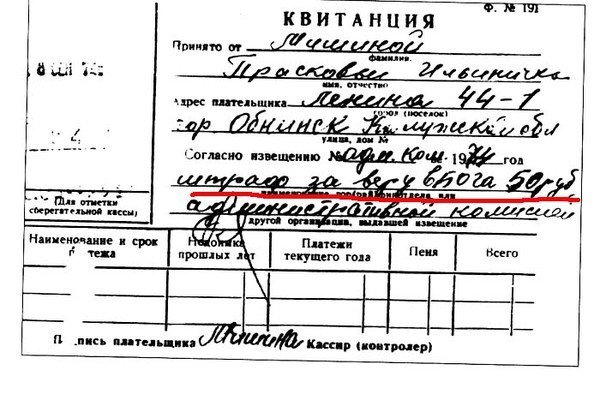 Ф. № 191
КВИТАНЦИЯ
Принято от Мишиной
фамилия.
Прасковьи Ильиничны
имя, отчество
Адрес плательщика Ленина 44-1
город (поселок)
гор Обнинск Калужской обл
улица, дом №
Согласно извещению № адм. ком. 1974 год
штраф за веру в Бога 50 руб
административной комиссией
другой организации, выдавшей извещение
(Для отметки
сберегательной кассы)
Наименование и срок
тежа
Недоимка
прошлых лет
Платежи
текущего года
Пеня
Всего
П пись плательщика Мишина Кассир (контролер)